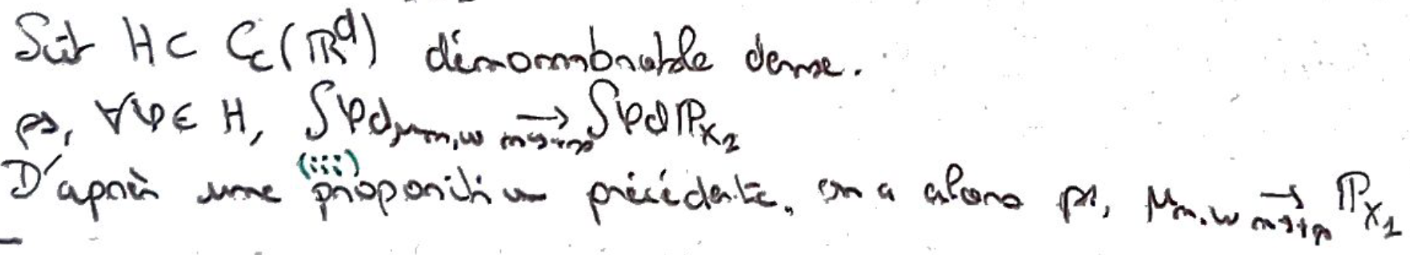 Soit H ⊂ C_c(ℝ^d) dénombrable dense.
ps, ∀φ ∈ H, ∫φdμ_{n,ω} →_{n→+∞} ∫φdℙ_{X_1}
(iii)
D'après une proposition précédente, on a alors ps, μ_{n,ω} →_{n→+∞} ℙ_{X_1}